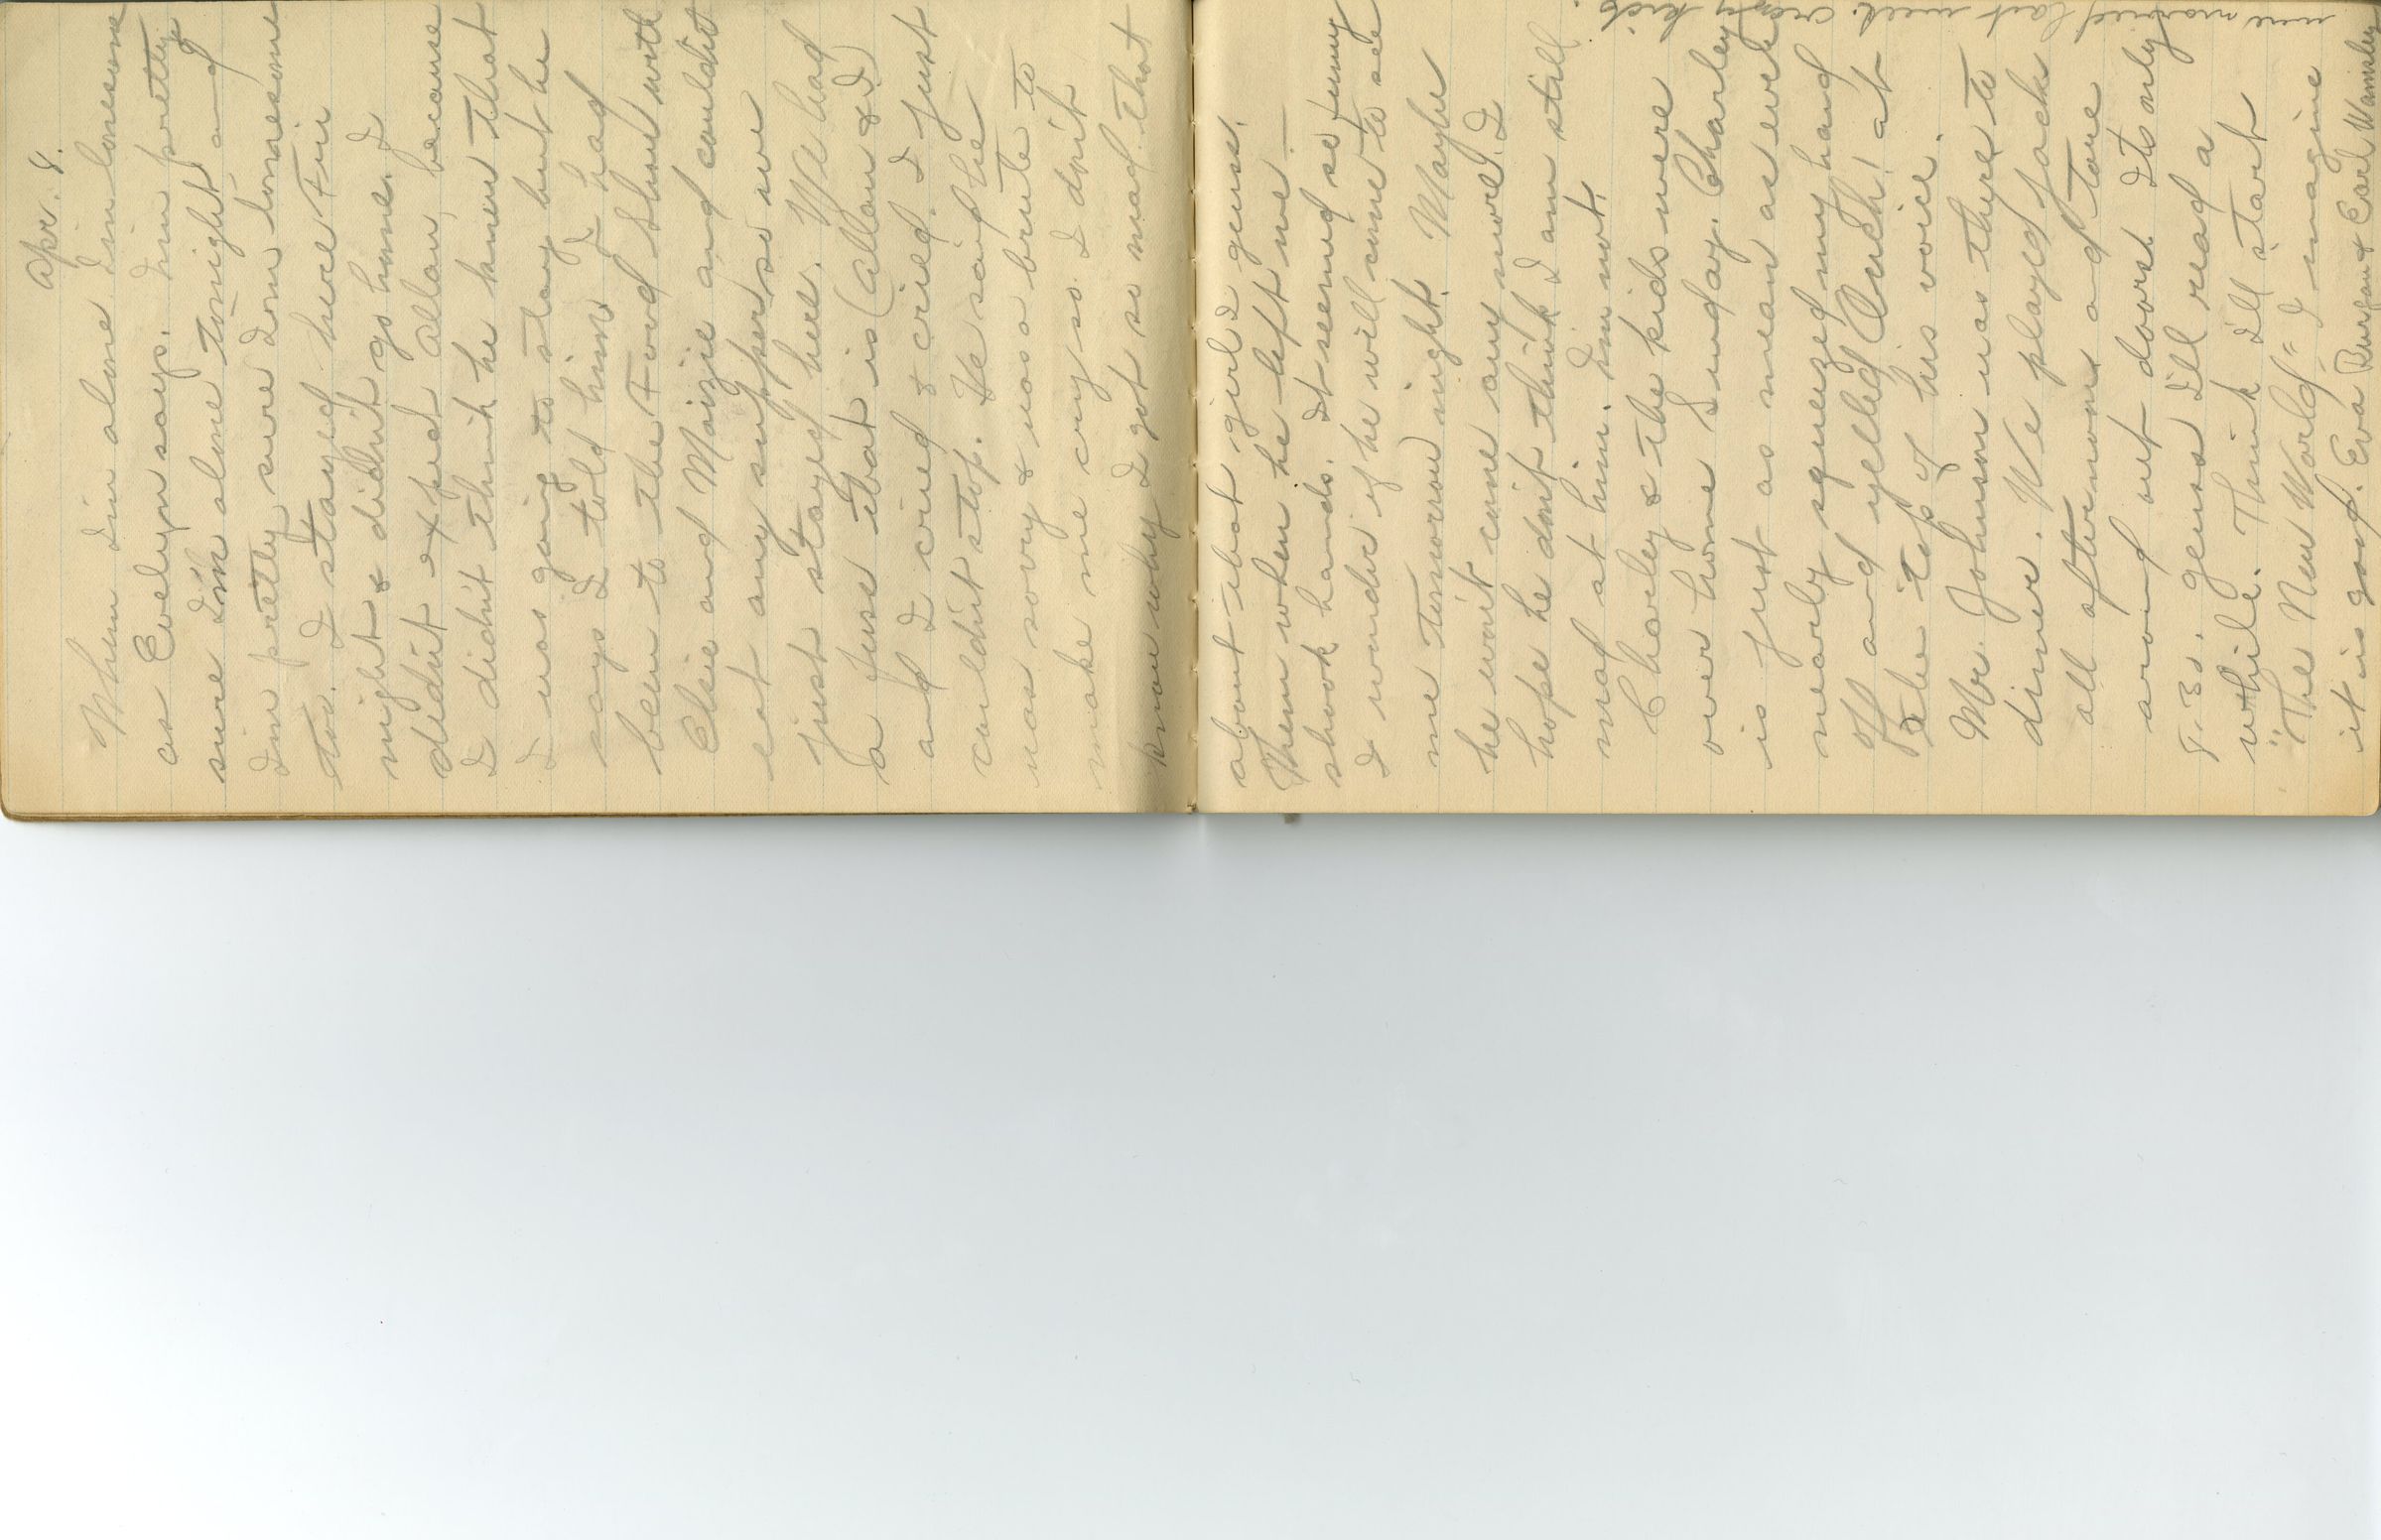 Apr. 8.
When I'm alone I'm lonesome
as Evelyn says. I'm pretty
sure I'm alone tonight and
I'm pretty sure I'm lonesome
too. I stayed here Fri
night & didn't go home. I
didn't expect Allan, because
I didn't think he knew that
I was going to stay but he
says I told him. I had
been to the Food Show with
Elsie and Maizie and couldn't
eat any supper, so we
just stayed here. We had
a fuse that is (Allan & I)
and I cried & cried. I just
couldn't stop. He said he
was sorry & was a brute to
make me cry so. I don't
know why I got so mad. That
about that girl I guess.
Then when he left we —
shook hands. It seemed so funny
I wonder if he will come to see
me tomorrow night. Maybe
he won't come any more. I
hope he don't think I am still
mad at him. I'm not.
Charley & the kids were
over home Sunday. Charley
is just as mean as ever he
nearly squeezed my hand
off and yelled Ouch! at
the top of his voice.
Mr. Johnson was there to
dinner. We played jacks
all afternoon and tore
around out doors. Its only
8.30. guess I'll read a
while. Think I'll start
"The New World" I imagine
it is good. Eva Burgan & Earl Wamsley
were married last week. crazy kids.